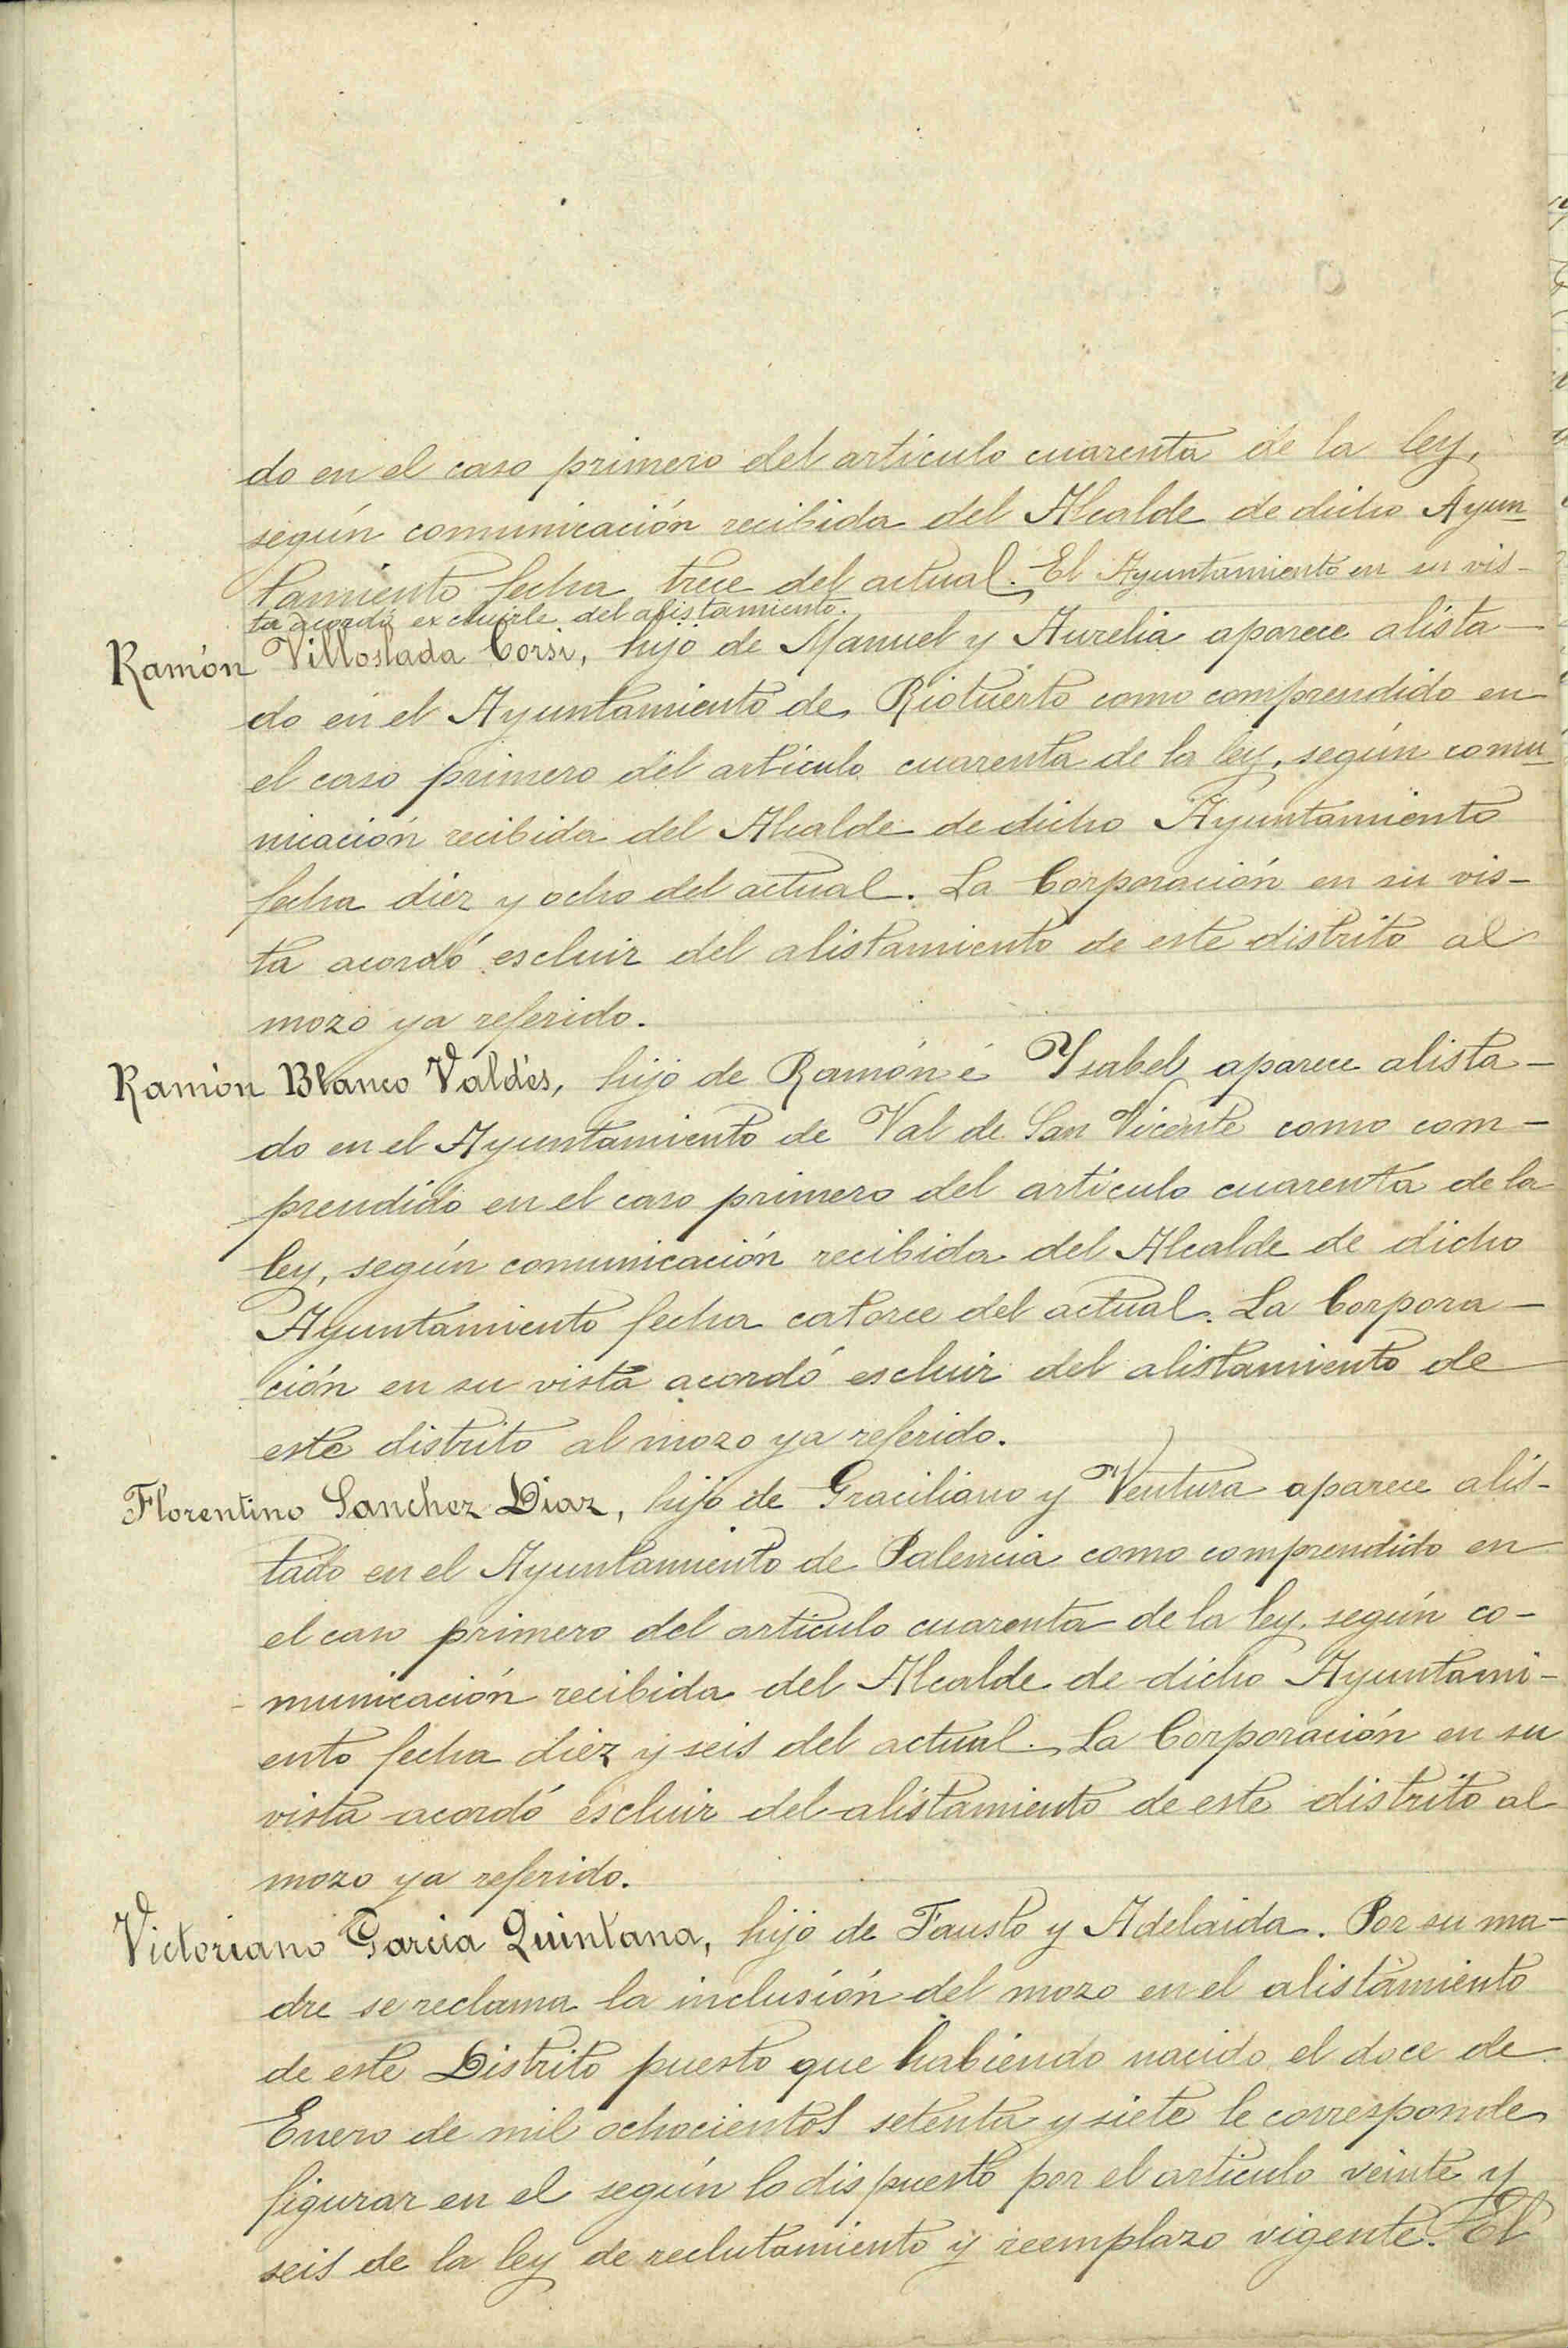 do en el caso primero del artículo cuarenta de la ley,
según comunicación recibida del Alcalde de dicho Ayun
tamiento fecha trece del actual. El Ayuntamiento en su vis-
ta acordó excluirle del alistamiento.
Ramón Villoslada Corsi, hijo de Manuel y Aurelia aparece alista-
do en el Ayuntamiento de Riotuerto como comprendido en
el caso primero del artículo cuarenta de la ley, según comu
nicación recibida del Alcalde de dicho Ayuntamiento
fecha diez y ocho del actual. La Corporación en su vis-
ta acordó escluir del alistamiento de este distrito al
mozo ya referido.
Ramón Blanco Valdés, hijo de Ramón é Ysabel aparece alista-
do en el Ayuntamiento de Val de San Vicente como com-
prendido en el caso primero del artículo cuarenta de la
ley, según comunicación recibida del Alcalde de dicho
Ayuntamiento fecha catorce del actual. La Corpora-
ción en su vista acordó escluir del alistamiento de
este distrito al mozo ya referido.
Florentino Sanchez Diaz, hijo de Graciliano y Ventura aparece alis-
tado en el Ayuntamiento de Palencia como comprendido en
el caso primero del artículo cuarenta de la ley, según co-
municación recibida del Alcalde de dicho Ayuntami-
ento fecha diez y seis del actual. La Corporación en su
vista acordó escluir del alistamiento de este distrito al
mozo ya referido.
Victoriano Garcia Quintana, hijo de Fausto y Adelaida. Por su ma-
dre se reclama la inclusión del mozo en el alistamiento
de este Distrito puesto que habiendo nacido el doce de
Enero de mil ochocientos setenta y siete le corresponde
figurar en el según lo dispuesto por el artículo veinte y
seis de la ley de reclutamiento y reemplazo vigente. El